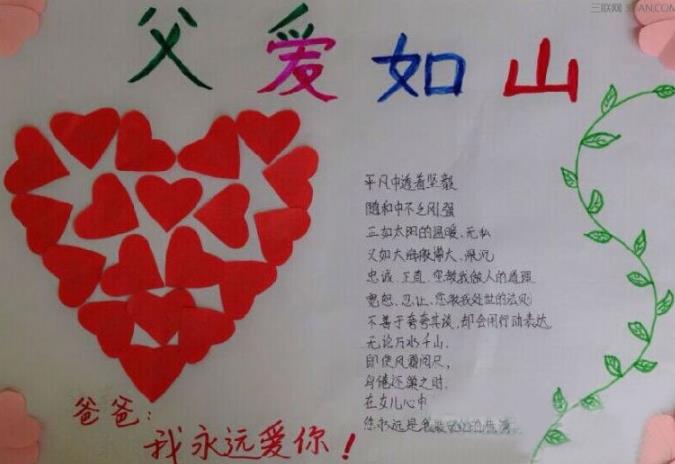 三联网 3LIAN.COM
父爱如山
平凡中透着坚毅
随和中不乏刚强
正如太阳的温暖、无私
又如大海般博大、深沉
忠诚、正直、您教我做人的道理
宽恕、忍让、您教我处世的法则
不善于夸夸其谈,却会用行动表达
无论万水千山
即使风霜
身倦还巢之时
在女儿心中
您永远是我
爸爸:
我永远爱你!